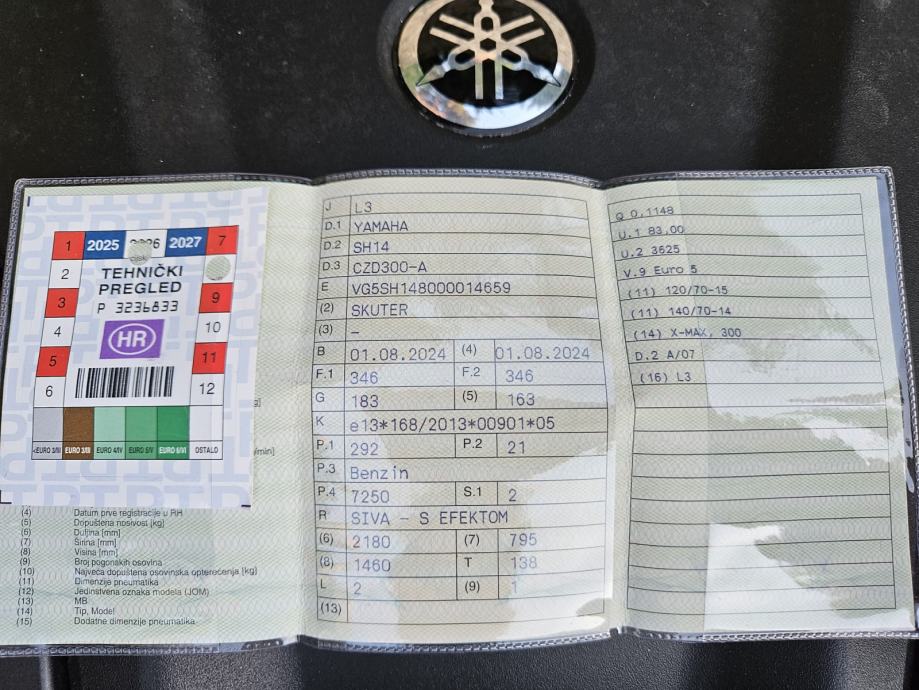 1 2025 2026 2027 7
2 TEHNIČKI
PREGLED
3 P 3236833 9
4 HR 10
5 11
6 12
<EURO 3/III EURO 3/III EURO 4/IV EURO 5/V EURO 6/VI OSTALO
(4) Datum prve registracije u RH
(5) Dopuštena nosivost [kg]
(6) Duljina [mm]
(7) Širina [mm]
(8) Visina [mm]
(9) Broj pogonskih osovina
(10) Najveća dopuštena osovinska opterećenja [kg]
(11) Dimenzije pneumatika
(12) Jedinstvena oznaka modela (JOM)
(13) MB
(14) Tip, Model
(15) Dodatne dimenzije pneumatika
J L3
D.1 YAMAHA
D.2 SH14
D.3 CZD300-A
E VG5SH148000014659
(2) SKUTER
(3) –
B 01.08.2024 (4) 01.08.2024
F.1 346 F.2 346
G 183 (5) 163
K e13*168/2013*00901*05
P.1 292 P.2 21
P.3 Benzin
P.4 7250 S.1 2
R SIVA - S EFEKTOM
(6) 2180 (7) 795
(8) 1460 T 138
L 2 (9) 1
(13)
Q 0,1148
U.1 83,00
U.2 3625
V.9 Euro 5
(11) 120/70-15
(11) 140/70-14
(14) X-MAX, 300
D.2 A/07
(16) L3